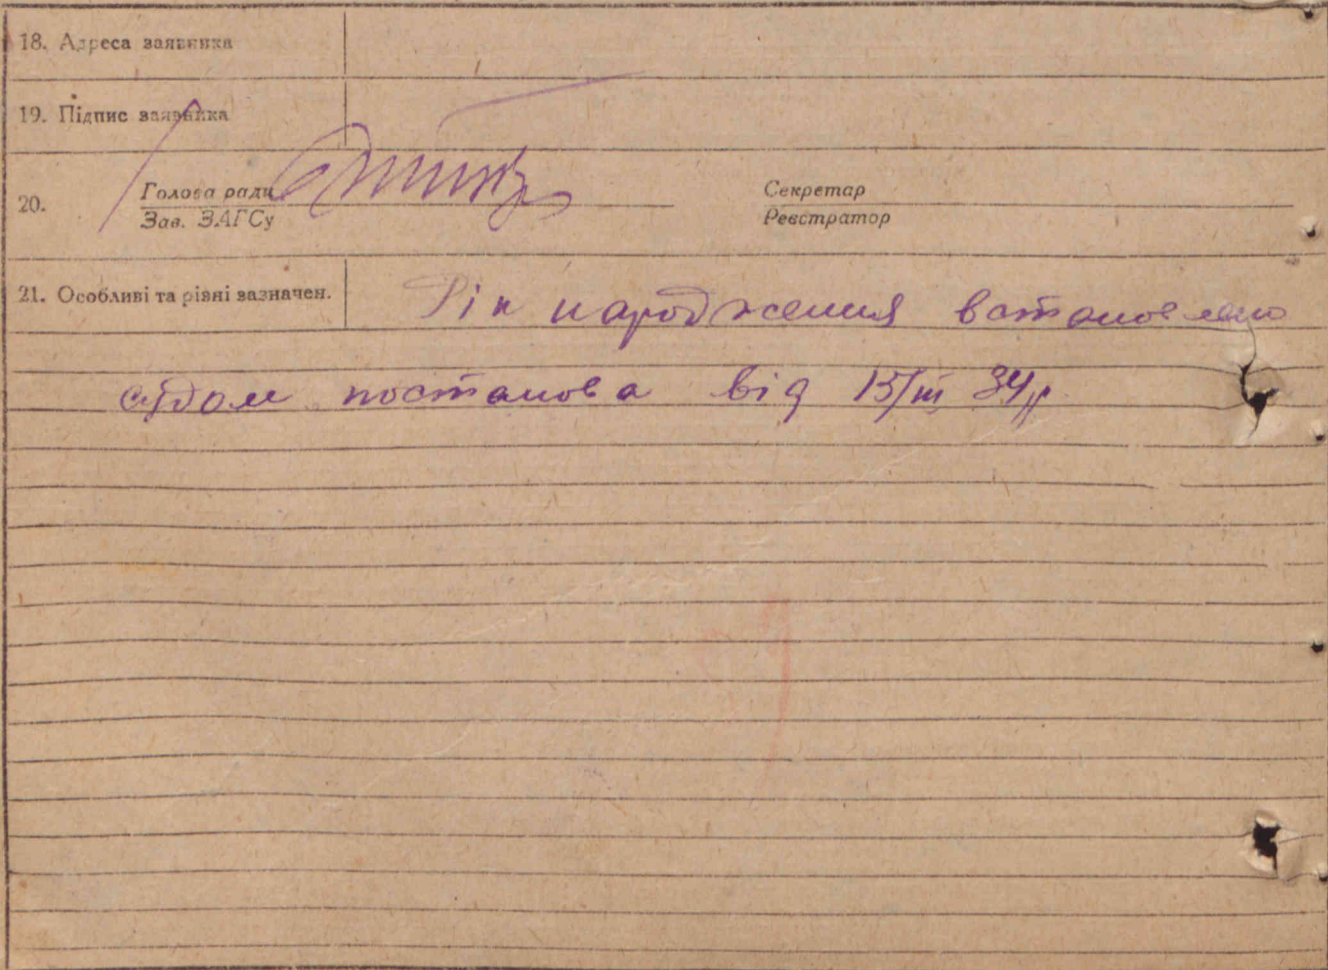 18. Адреса заявника
19. Підпис заявника
20. Голова ради
Зав. ЗАГСу
Секретар
Реєстратор
21. Особливі та різні зазначен.
Рік народження встановлено
судом постанова від 15/III 34р